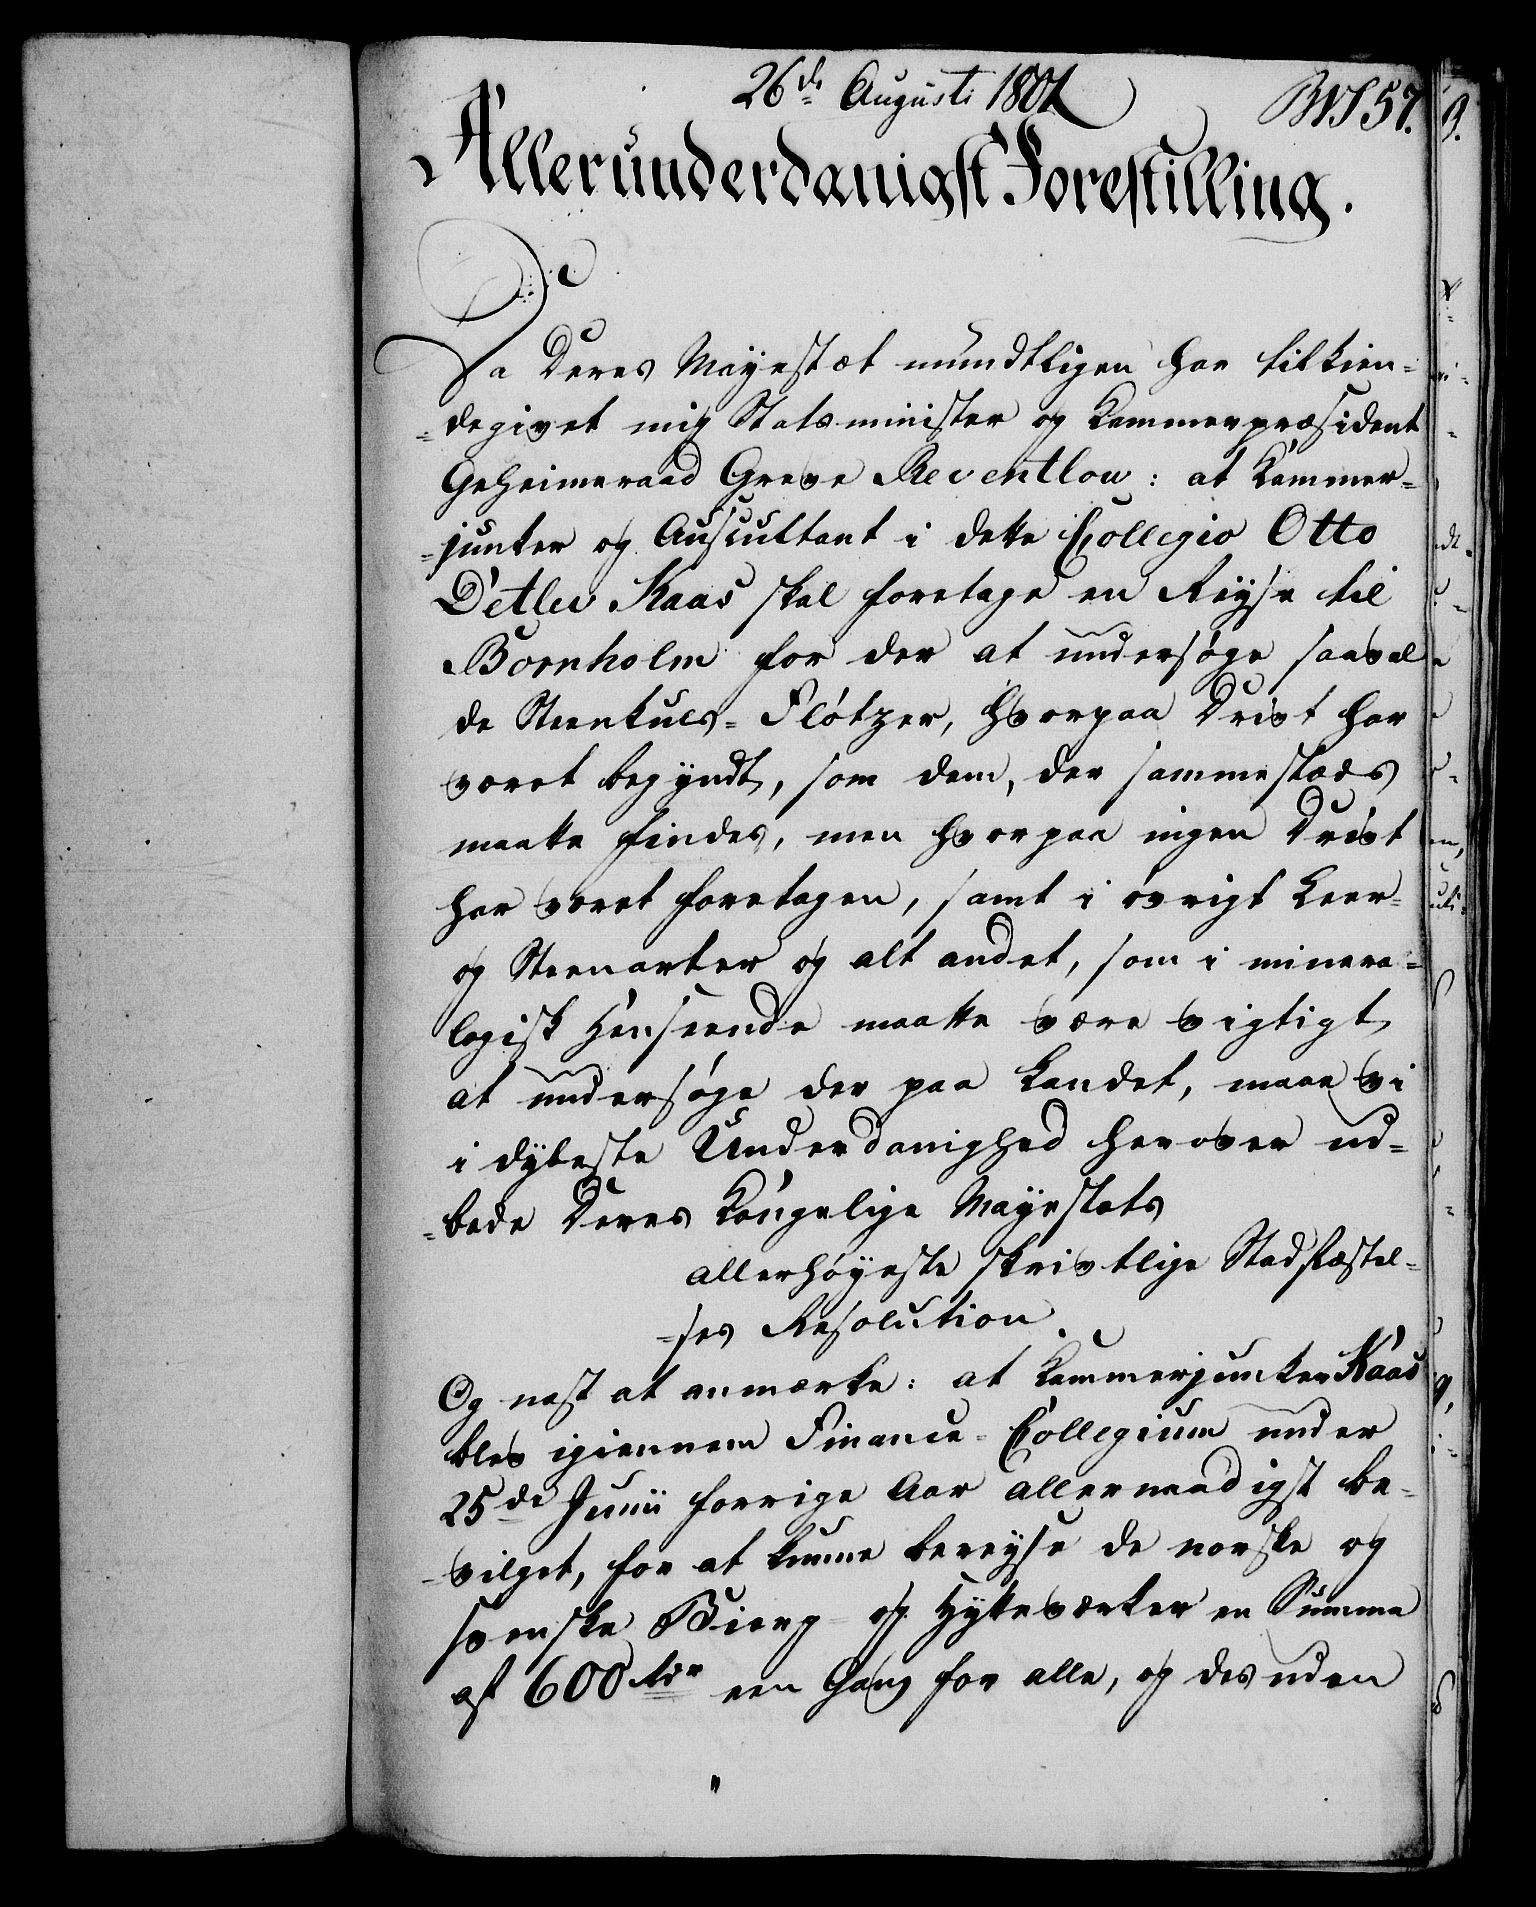 26de Augusti 1801
57.
Allerunderdanigst Forestilling.
Da Deres Mayestæt mundtligen har tilkien-
=degivet mig Statsminister og Kammerpræsident
Geheimeraad Greve Reventlow: at Kammer-
=junker og Auscultant i dette Collegio Otto
Detlev Kaas skal foretage en Reyse til
Bornholm for der at undersøge saavel
de Steenkuls-Flötzer, hvorpaa Drivt har
været begyndt, som dem, der sammestæds
maatte findes, men hvorpaa ingen Drivt
har været foretagen, samt i øvrigt Leer-
og Steenarter og alt andet, som i minera-
logisk Henseende maatte være vigtigt
at undersøge der paa Landet, maae vi
i dybeste Underdanighed herover ud-
=bede Deres Kongelige Mayestæts
allerhøyeste skrivtlige Stadfæstel-
=ses Resolution.
Og næst at anmærke: at Kammerjunker Kaas
blev igiennem Finance-Collegium under
25de Junii forrige Aar allernaadigst be-
=vilget, for at kunne bereyse de norske og
svenske Bierg- og Hytteværker en Summa
af 600 Rdr een Gang for alle, og desuden